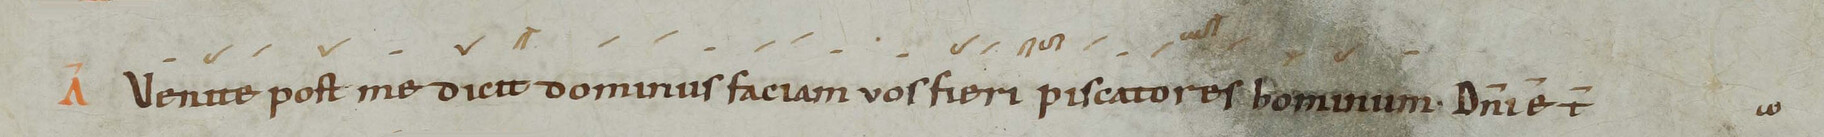 Ā Venite post me dicit dominus faciam vos fieri piscatores hominum. Dn̄i ē t̄ ω